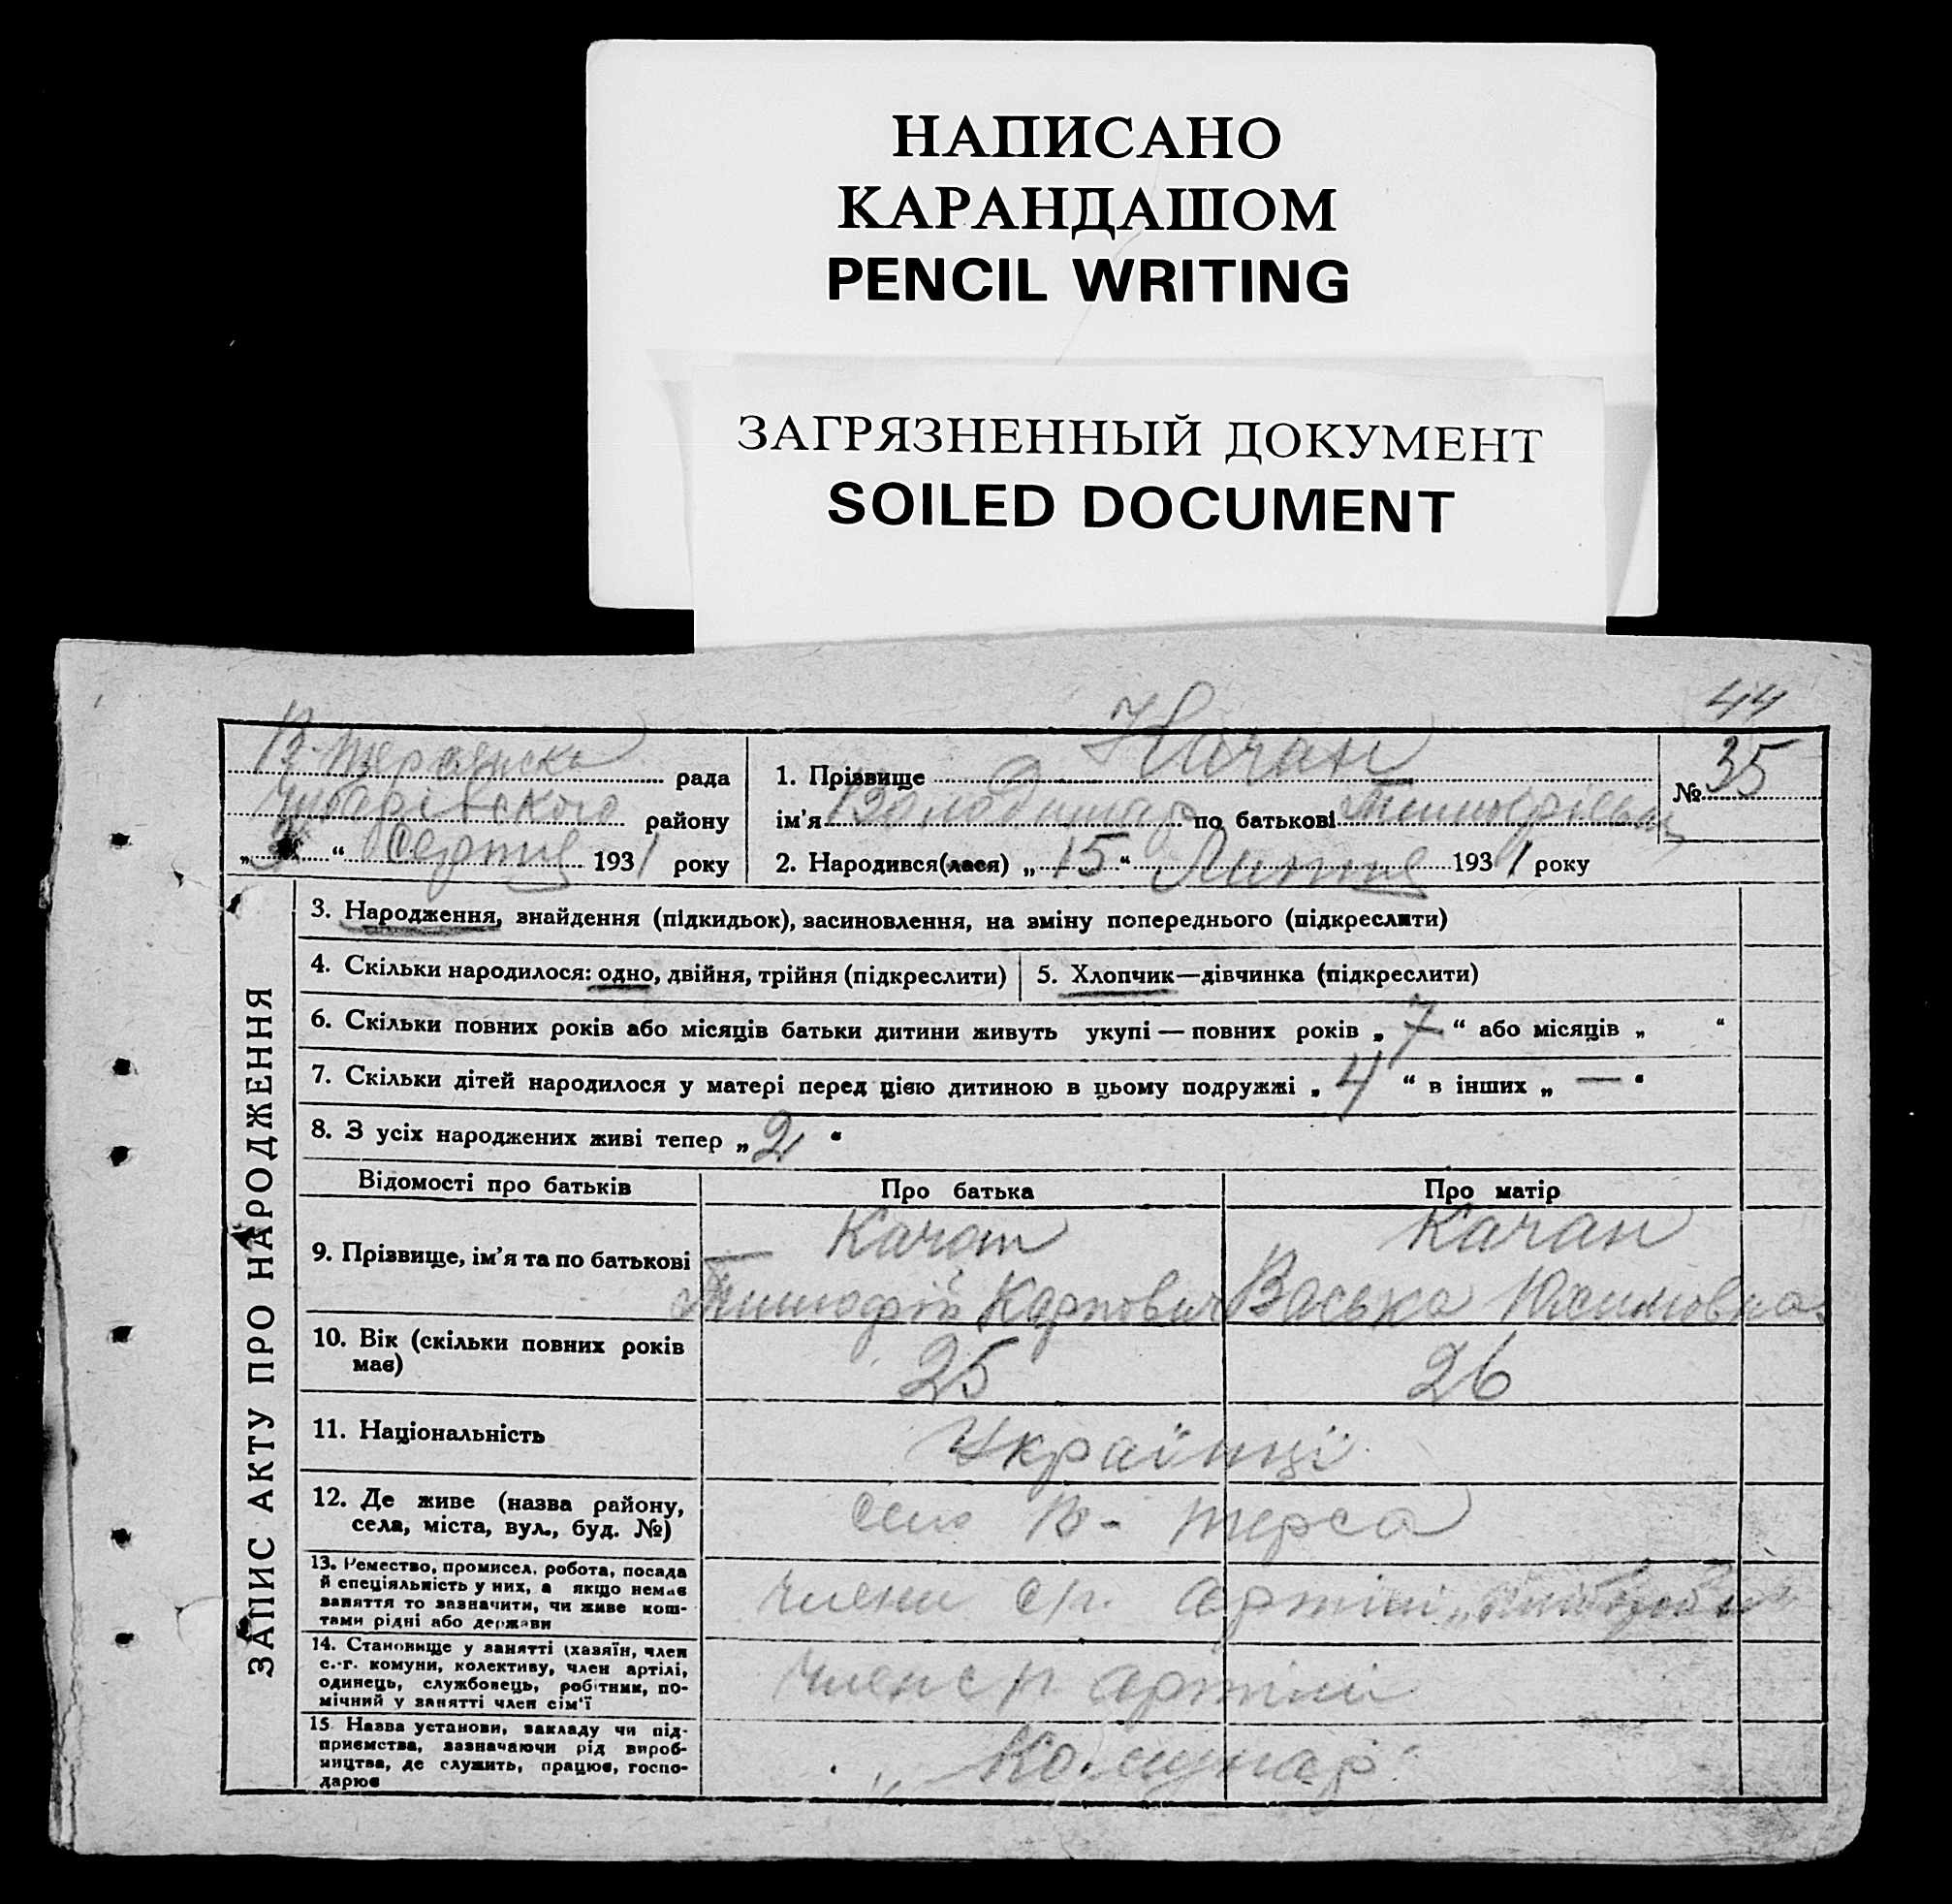 НАПИСАНО
КАРАНДАШОМ
PENCIL WRITING
ЗАГРЯЗНЕННЫЙ ДОКУМЕНТ
SOILED DOCUMENT
44
рада
району
193 1 року
1. Прізвище Качан
ім'я Володимир по батькові
2. Народився(лася) „ 15 “ 193 1 року
№ 35
ЗАПИС АКТУ ПРО НАРОДЖЕННЯ
3. Народження, знайдення (підкидьок), засиновлення, на зміну попереднього (підкреслити)
4. Скільки народилося: одно, двійня, трійня (підкреслити)
5. Хлопчик—дівчинка (підкреслити)
6. Скільки повних років або місяців батьки дитини живуть укупі — повних років „ 7 “ або місяців „ “
7. Скільки дітей народилося у матері перед цією дитиною в цьому подружжі „ 4 “ в інших „ — “
8. З усіх народжених живі тепер „ 2 “
Відомості про батьків
Про батька
Про матір
9. Прізвище, ім'я та по батькові
Качан
Тимофій Карпович
Качан
Васька Юхимовна
10. Вік (скільки повних років
має)
25
26
11. Національність
Українці
12. Де живе (назва району,
села, міста, вул., буд. №)
село В-Терса
13. Ремество, промисел, робота, посада
й спеціяльність у них, а якщо немає
заняття то зазначити, чи живе кош-
тами рідні або держави
члени с/г. артілі
14. Становище у занятті (хазяїн, член
с.-г. комуни, колективу, член артілі,
одинець, службовець, робітник, по-
мічний у занятті член сім'ї
член с/г. артілі
15. Назва установи, закладу чи під-
приємства, зазначаючи рід вироб-
ництва, де служить, працює, госпо-
дарює
„Комунар“